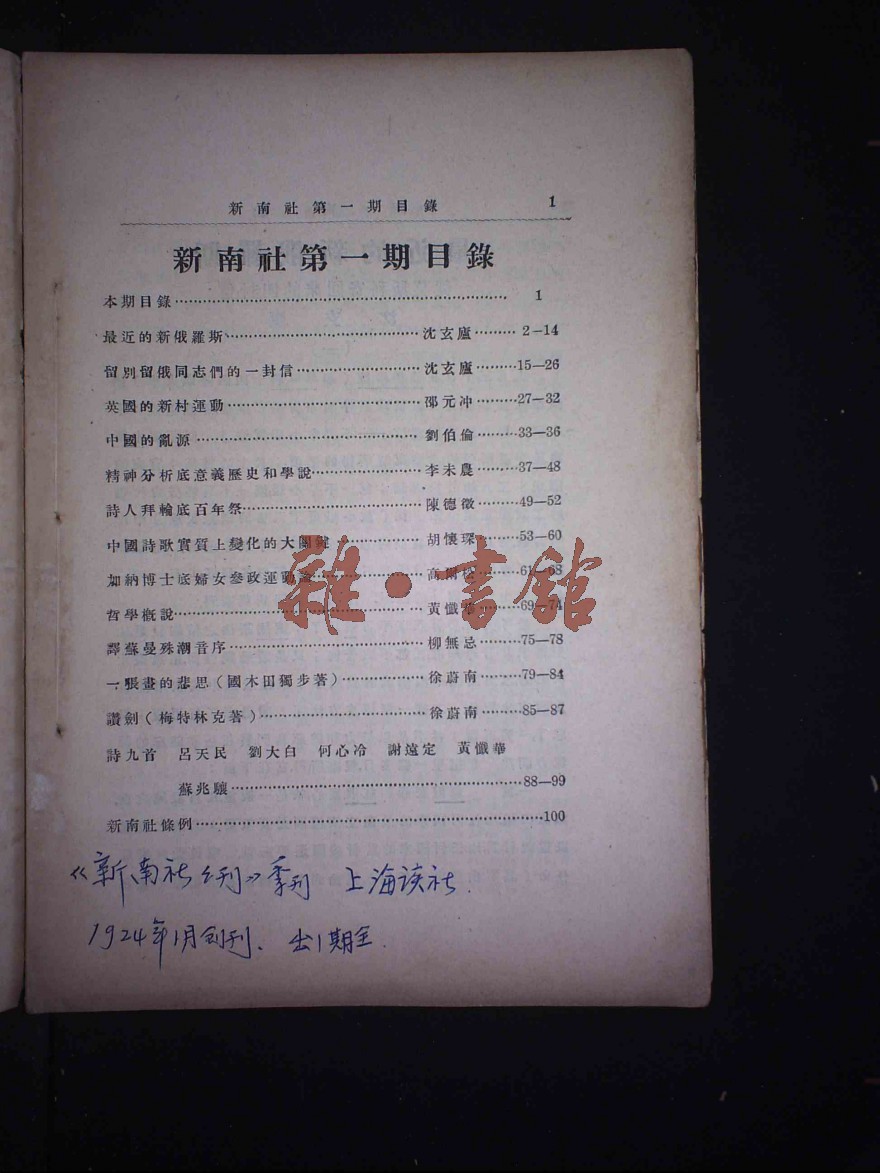 新南社第一期目錄 1
新南社第一期目錄
本期目錄 1
最近的新俄羅斯 沈玄廬 2—14
留別留俄同志們的一封信 沈玄廬 15—26
英國的新村運動 邵元冲 27—32
中國的亂源 劉伯倫 33—36
精神分析底意義歷史和學說 李未農 37—48
詩人拜輪底百年祭 陳德徵 49—52
中國詩歌實質上變化的大關鍵 胡懷琛 53—60
加納博士底婦女參政運動 61—68
哲學概說 黃懺華 69—74
譯蘇曼殊潮音序 柳無忌 75—78
一張畫的悲思(國木田獨步著) 徐蔚南 79—84
讚劍(梅特林克著) 徐蔚南 85—87
詩九首 呂天民 劉大白 何心冷 謝遠定 黃懺華
蘇兆驤 88—99
新南社條例 100
《新南社社刊》季刊 上海该社.
1924年1月创刊、出1期全.
雜·書館